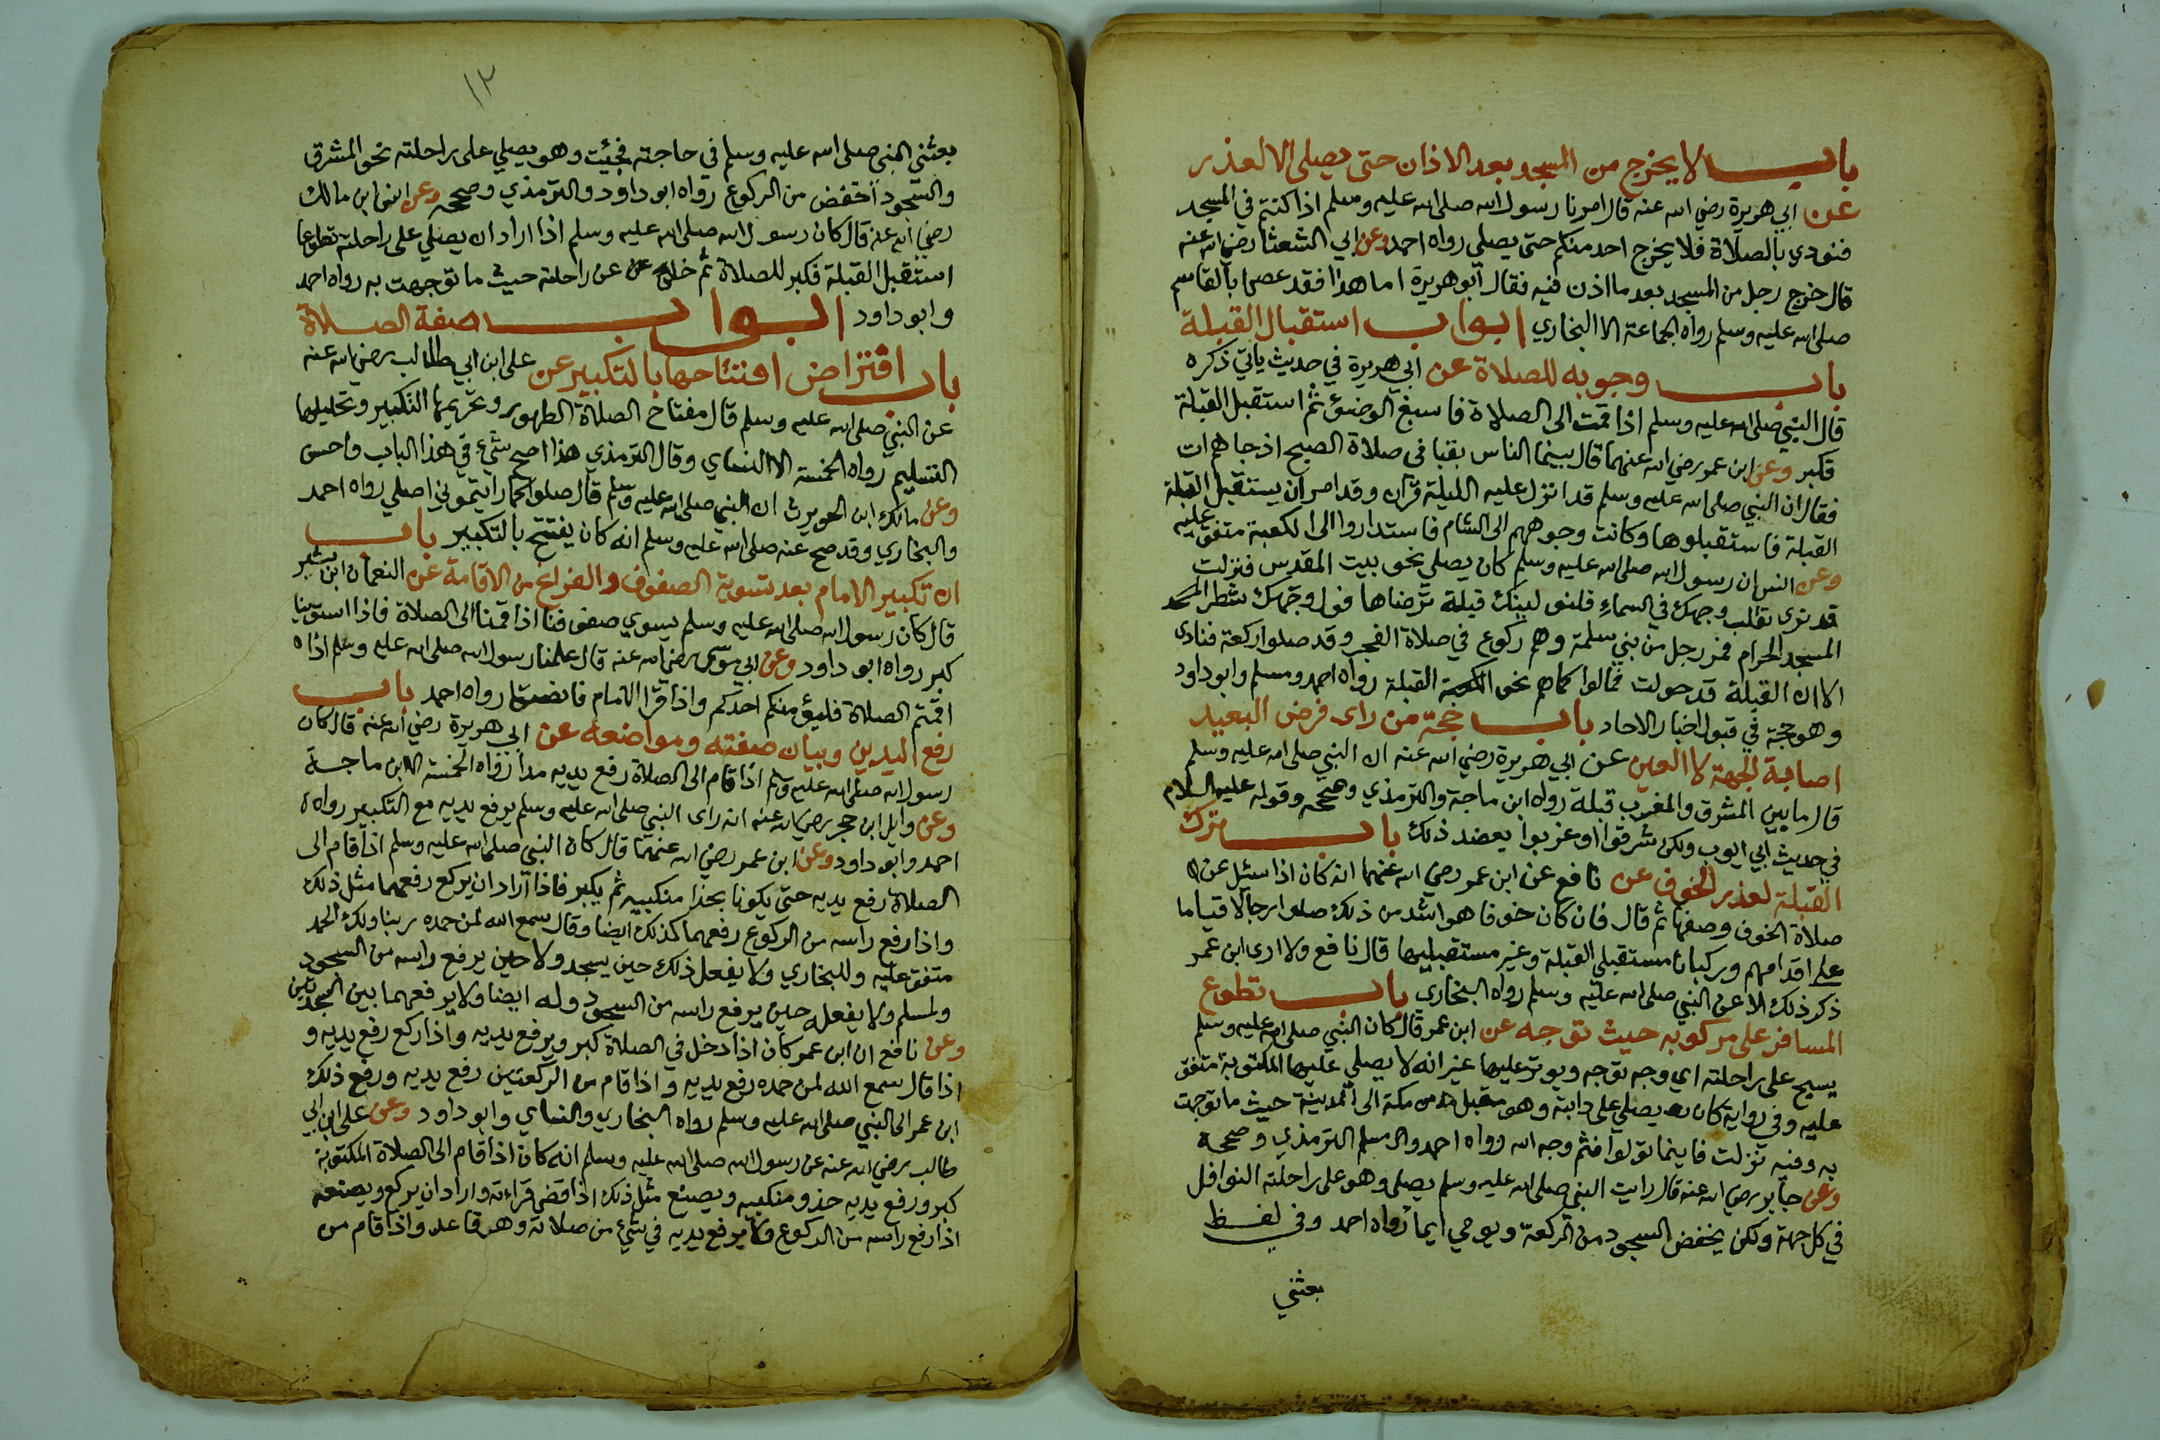 باب لا يخرج من المسجد بعد الاذان حتى يصلي الا لعذر
عن ابي هريرة رضي الله عنه قال امرنا رسول الله صلى الله عليه وسلم اذا كنتم في المسجد
فنودي بالصلاة فلا يخرج احد منكم حتى يصلي رواه احمد وعن ابي الشعثا رضي الله عنه
قال خرج رجل من المسجد بعد ما اذن فيه فقال ابو هريرة اما هذا فقد عصا بالقاسم
صلى الله عليه وسلم رواه الجماعة الا البخاري ابواب استقبال القبلة
باب وجوبه للصلاة عن ابي هريرة في حديث ياتي ذكره
قال النبي صلى الله عليه وسلم اذا قمت الى الصلاة فاسبغ الوضؤ ثم استقبل القبلة
فكبر وعن ابن عمر رضي الله عنهما قال بينما الناس بقبا في صلاة الصبح اذ جاهم ات
فقال ان النبي صلى الله عليه وسلم قد انزل عليه الليلة قران وقد امر ان يستقبل القبلة
القبلة فاستقبلوها وكانت وجوههم الى الشام فاستداروا الى الكعبة متفق عليه
وعن انس ان رسول الله صلى الله عليه وسلم كان يصلي نحو بيت المقدس فنزلت
قد نرى تقلب وجهك في السماء فلنولينك قبلة ترضاها فول وجهك شطر
المسجد الحرام فمر رجل من بني سلمة وهم ركوع في صلاة الفجر وقد صلوا ركعة فنادى
الا ان القبلة قد حولت فمالوا كما هم نحو القبلة رواه احمد ومسلم وابو داود
وهو حجة في قبول اخبار الاحاد باب حجة من راى فرض البعيد
اصابة الجهة لا العين عن ابي هريرة رضي الله عنه ان النبي صلى الله عليه وسلم
قال ما بين المشرق والمغرب قبلة رواه ابن ماجة والترمذي وصححه وقوله عليه السلام
في حديث ابي ايوب ولكن شرقوا او غربوا يعضد ذلك باب ترك
القبلة لعذر الخوف عن نافع عن ابن عمر رضي الله عنهما انه كان اذا سئل عن
صلاة الخوف وصفها ثم قال فان كان خوفا هو اشد من ذلك صلوا رجالا قياما
على اقدامهم وركبانا مستقبلي القبلة وغير مستقبليها قال نافع ولا ارى ابن عمر
ذكر ذلك الا عن النبي صلى الله عليه وسلم رواه البخاري باب تطوع
المسافر على مركوبه حيث توجه عن ابن عمر قال كان النبي صلى الله عليه وسلم
يسبح على راحلته اي وجه توجه ويوتر عليها غير انه لا يصلي عليها المكتوبة متفق
عليه وفي رواية كان يصلي على دابته وهو مقبل من مكة الى المدينة حيث ما توجهت
به وفيه نزلت فاينما تولوا فثم وجه الله رواه احمد ومسلم الترمذي وصححه
وعن جابر رضي الله عنه قال رايت النبي صلى الله عليه وسلم يصلي وهو على راحلته النوافل
في كل جهة ولكن يخفض السجود من الركعة ويومي ايما رواه احمد وفي لفظ
بعثني
١٢
بعثني النبي صلى الله عليه وسلم في حاجته فجئت وهو يصلي على راحلته نحو المشرق
والسجود اخفض من الركوع رواه ابو داود والترمذي وصححه وعن انس ابن مالك
رضي الله عنه قال كان رسول الله صلى الله عليه وسلم اذا اراد ان يصلي على راحلته تطوعا
استقبل القبلة فكبر للصلاة ثم خلى عن راحلته حيث ما توجهت به رواه احمد
وابو داود ابواب صفة الصلاة
باب افتراض افتتاحها بالتكبير عن على ابن ابي طالب رضي الله عنه
عن النبي صلى الله عليه وسلم قال مفتاح الصلاة الطهور وتحريمها التكبير وتحليلها
التسليم رواه الخمسة الا النساي وقال الترمذي هذا اصح شيء في هذا الباب واحسن
وعن مالك ابن الحويرث ان النبي صلى الله عليه وسلم قال صلوا كما رايتموني اصلي رواه احمد
والبخاري وقد صح عنه صلى الله عليه وسلم انه كان يفتتح بالتكبير باب
ان تكبير الامام بعد تسوية الصفوف والفراغ من الاقامة عن النعمان ابن بشير
قال كان رسول الله صلى الله عليه وسلم يسوي صفوفنا اذا قمنا الى الصلاة فاذا استوينا
كبر رواه ابو داود وعن ابي موسى رضي الله عنه قال علمنا رسول الله صلى الله عليه وسلم اذا
اقمتم الصلاة فليؤمكم احدكم واذا قرا الامام فانصتوا رواه احمد باب
رفع اليدين وبيان صفته ومواضعه عن ابي هريرة رضي الله عنه قال كان
رسول الله صلى الله عليه وسلم اذا قام الى الصلاة رفع يديه مدا رواه الخمسة الا ابن ماجة
وعن وايل ابن حجر رضي الله عنه انه راى النبي صلى الله عليه وسلم يرفع يديه مع التكبير رواه
احمد وابو داود وعن ابن عمر رضي الله عنهما قال كان النبي صلى الله عليه وسلم اذا قام الى
الصلاة رفع يديه حتى يكونا بحذا منكبيه ثم يكبر فاذا اراد ان يركع رفعهما مثل ذلك
واذا رفع راسه من الركوع رفعهما كذلك ايضا وقال سمع الله لمن حمده ربنا ولك الحمد
متفق عليه وللبخاري ولا يفعل ذلك حين يسجد ولا حين يرفع راسه من السجود
ولمسلم ولا يفعله حين يرفع راسه من السجود وله ايضا ولا يرفعهما بين السجدتين
وعن نافع ان ابن عمر كان اذا دخل في الصلاة كبر ويرفع يديه واذا ركع رفع يديه و
اذا قال سمع الله لمن حمده رفع يديه واذا قام من الركعتين رفع يديه ورفع ذلك
ابن عمر الى النبي صلى الله عليه وسلم رواه البخاري والنساي وابو داود وعن على ابن ابي
طالب رضي الله عنه عن رسول الله صلى الله عليه وسلم انه كان اذا قام الى الصلاة المكتوبة
كبر ورفع يديه حذو منكبيه ويصنع مثل ذلك اذا قضى قراءته واراد ان يركع ويصنعه
اذا رفع راسه من الركوع ولا يرفع يديه في شيء من صلاته وهو قاعد واذا قام من